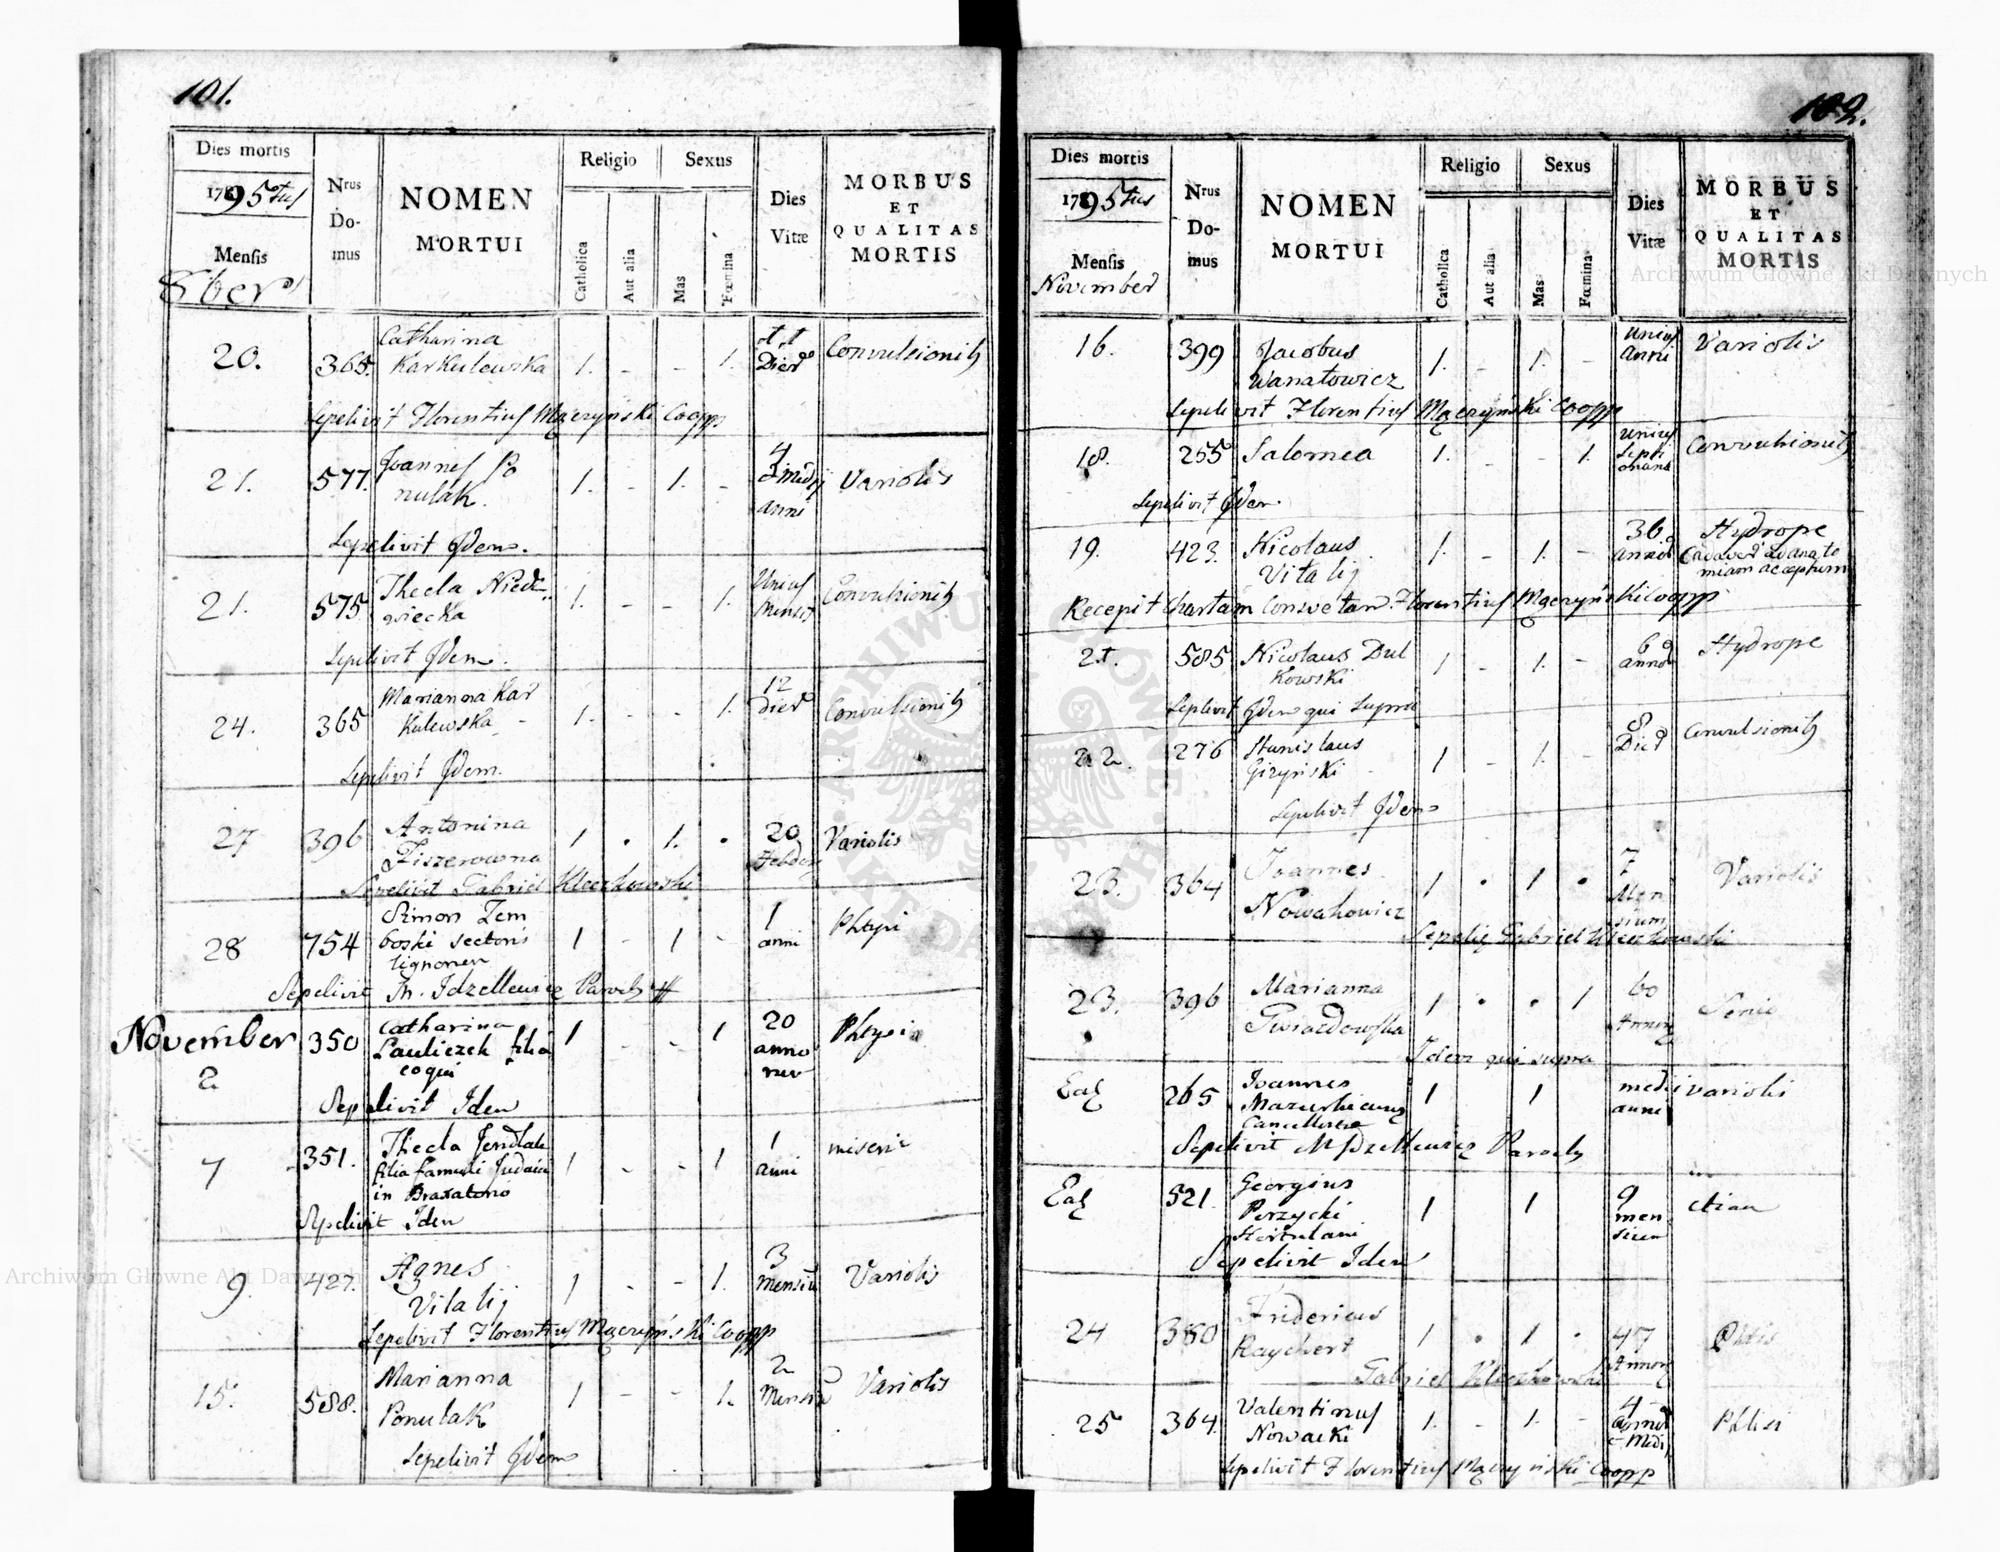 101.
Dies mortis
1795tus
Mensis
8ber
Nrus
Do-
mus
NOMEN
MORTUI
Religio
Sexus
Catholica
Aut alia
Mas
Fœmina
Dies
Vitæ
MORBUS
ET
QUALITAS
MORTIS
20.
365.
Catharina
Karkulewska
1. - - 1.
Dier
Convulsionib
Sepelivit Florentius Mączyński Coopp
21.
577.
Joannes Po
nulak.
1. - 1. -
4
anni
Variolis
Sepelivit Idem.
21.
575
Thecla Niedz
wiecka
1. - - 1.
Unius
Mensis
Convulsionib
Sepelivit Idem.
24.
365
Marianna Kar
kulewska
1. - - 1.
12
Dier
Convulsionib
Sepelivit Idem.
27
396
Antonina
Fiszerowna
1 . 1. .
20
Hebdom
Variolis
Sepelivit Gabriel Kleczkowski
28
754
Simon Zem
boski sectoris
lignorum
1 - 1 -
1
anni
Phtysi
Sepelivit M. Idzellewicz Paroch
November
2
350
Catharina
Pauliczek filia
coqui
1 - - 1
20
anno
rum
Phtysi
Sepelivit Idem
7
351.
Thecla Jendlak
filia famuli Judaici
in Braxatorio
1 - - 1
1
anni
miseri
Sepelivit Idem
9.
427.
Agnes
Vitalij
1 - - 1.
3
Mensiu
Variolis
Sepelivit Florentius Mączyński Coopp
15.
588.
Marianna
Ponulak
1 - - 1.
2
Mensiu
Variolis
Sepelivit Idem
102.
Dies mortis
1795tus
Mensis
November
Nrus
Do-
mus
NOMEN
MORTUI
Religio
Sexus
Catholica
Aut alia
Mas
Fœmina
Dies
Vitæ
MORBUS
ET
QUALITAS
MORTIS
16.
399
Jacobus
Wanatowicz
1. - 1. -
Unius
Anni
Variolis
Sepelivit Florentius Mączyński Coopp
18.
255
Salomea
1. - - 1.
Unius
Septi
mana
Convulsionib
Sepelivit Idem.
19.
423.
Nicolaus
Vitalij
1. - 1. -
36
annor
Hydrope
Cadaver ad anato
miam acceptum
Recepit Chartam Consvetam Florentius Mączyński Coopp
21.
585
Nicolaus Dul
kowski
1 - 1. -
6
annor
Hydrope
Seplivit Idem qui supra
22.
276
Stanislaus
Gizyński
1 - 1. -
8
Dier
Convulsionib
Sepelivit Idem
23.
364
Joannes
Nowakowicz
1 . 1 .
7
Men
sium
Variolis
Sepeliv Gabriel Kleczkowski
23.
396
Marianna
Gwiazdowska
1 . . 1
60
Annor
Senio
Idem qui supra
Ead
265
Joannes
Cancellistae
1 1
medii
anni
variolis
Sepelivit M Idzellewicz Paroch
Ead
521.
Georgius
Porzycki
Hortulani
1 1
9
men
sium
etiam
Sepelivit Idem
24
380
Fridericus
Raychert
1 . 1 .
47
Annor
Phtis
Gabriel Kleczkowski
25
364.
Valentinus
Nowacki
1. - 1. -
4
annor
c Medij
Phtisi
Sepelivit Florentius Mączyński Coopp
Archiwum Główne Akt Dawnych
Archiwum Główne Akt Dawnych
ARCHIWUM GŁÓWNE AKT DAWNYCH